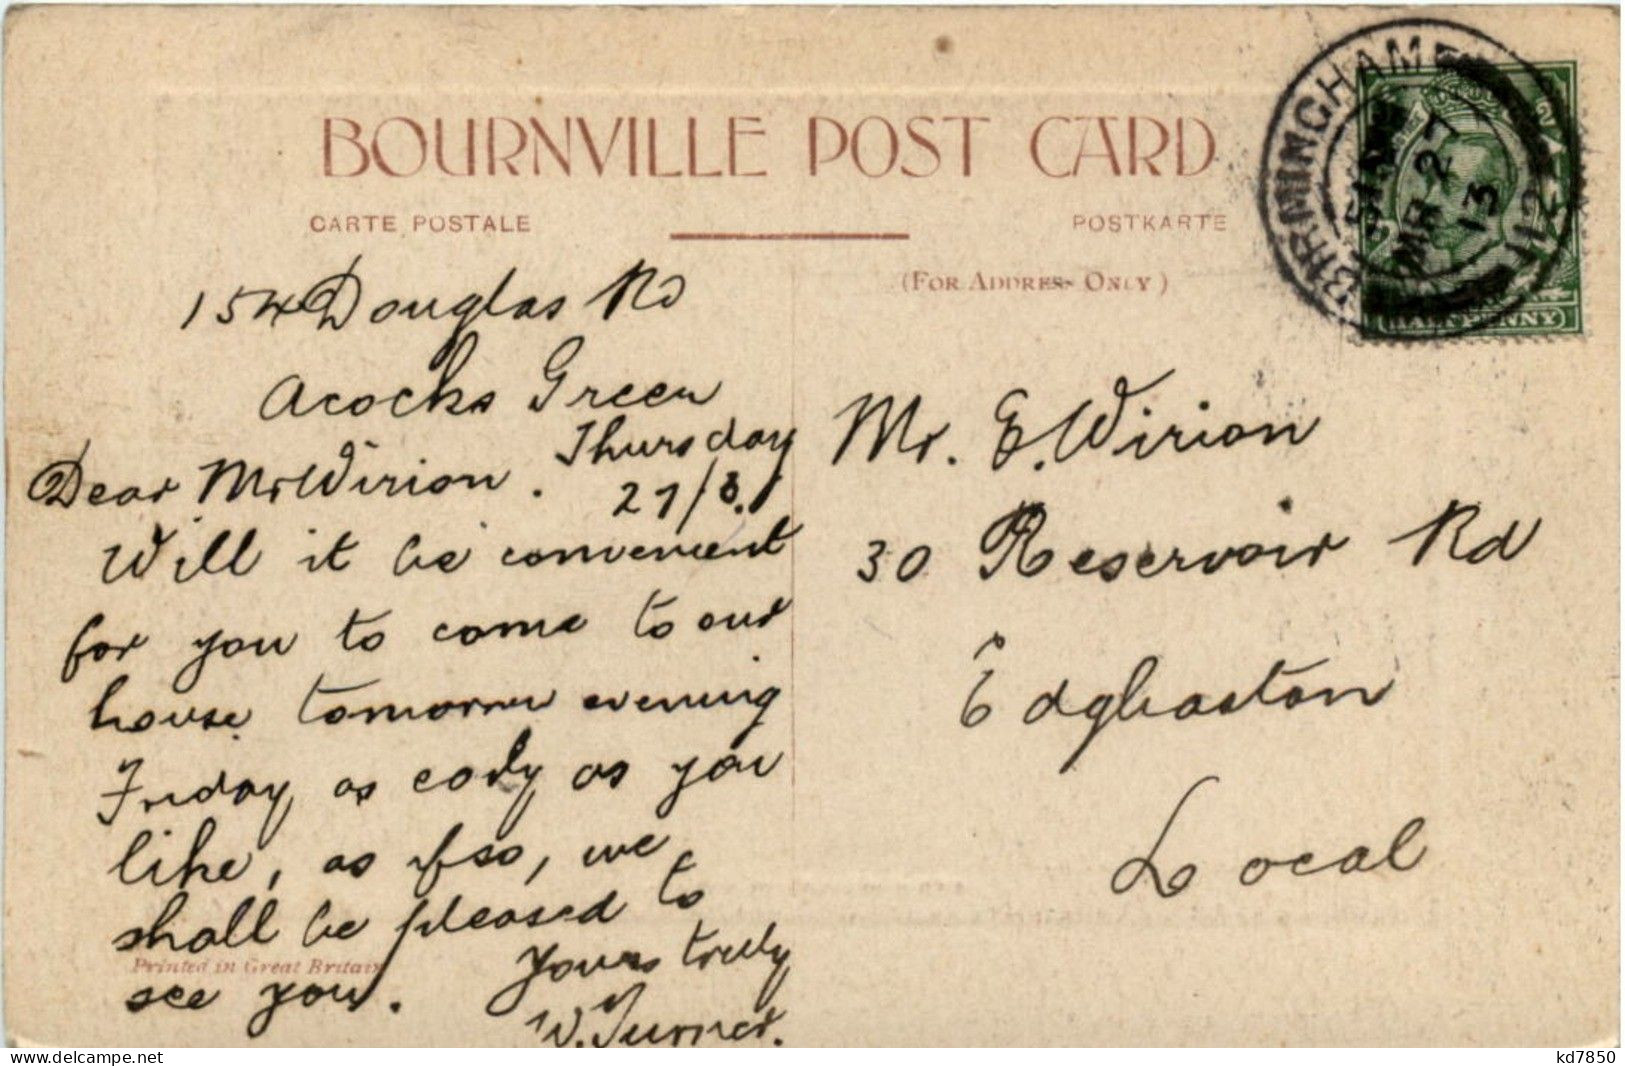 BOURNVILLE POST CARD
CARTE POSTALE
POSTKARTE
(FOR ADDRESS ONLY)
BIRMINGHAM
MR 27
13
112
HALFPENNY
154 Douglas Rd
Acocks Green
Thursday
Dear Mr Wirion.
27/3.
Will it be convenient
for you to come to our
house tomorrow evening
Friday as early as you
like, as if so, we
shall be pleased to
see you.
Yours truly
W. Turner.
Printed in Great Britain
Mr. E. Wirion
30 Reservoir Rd
Edgbaston
Local
kd7850